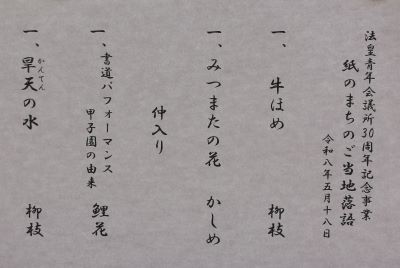 法皇青年会議所30周年記念事業
紙のまちのご当地落語
令和八年五月十八日
一、牛ほめ 柳枝
一、みつまたの花 かしめ
仲入り
一、書道パフォーマンス
甲子園の由来 鯉花
一、旱天の水 柳枝
かんてん